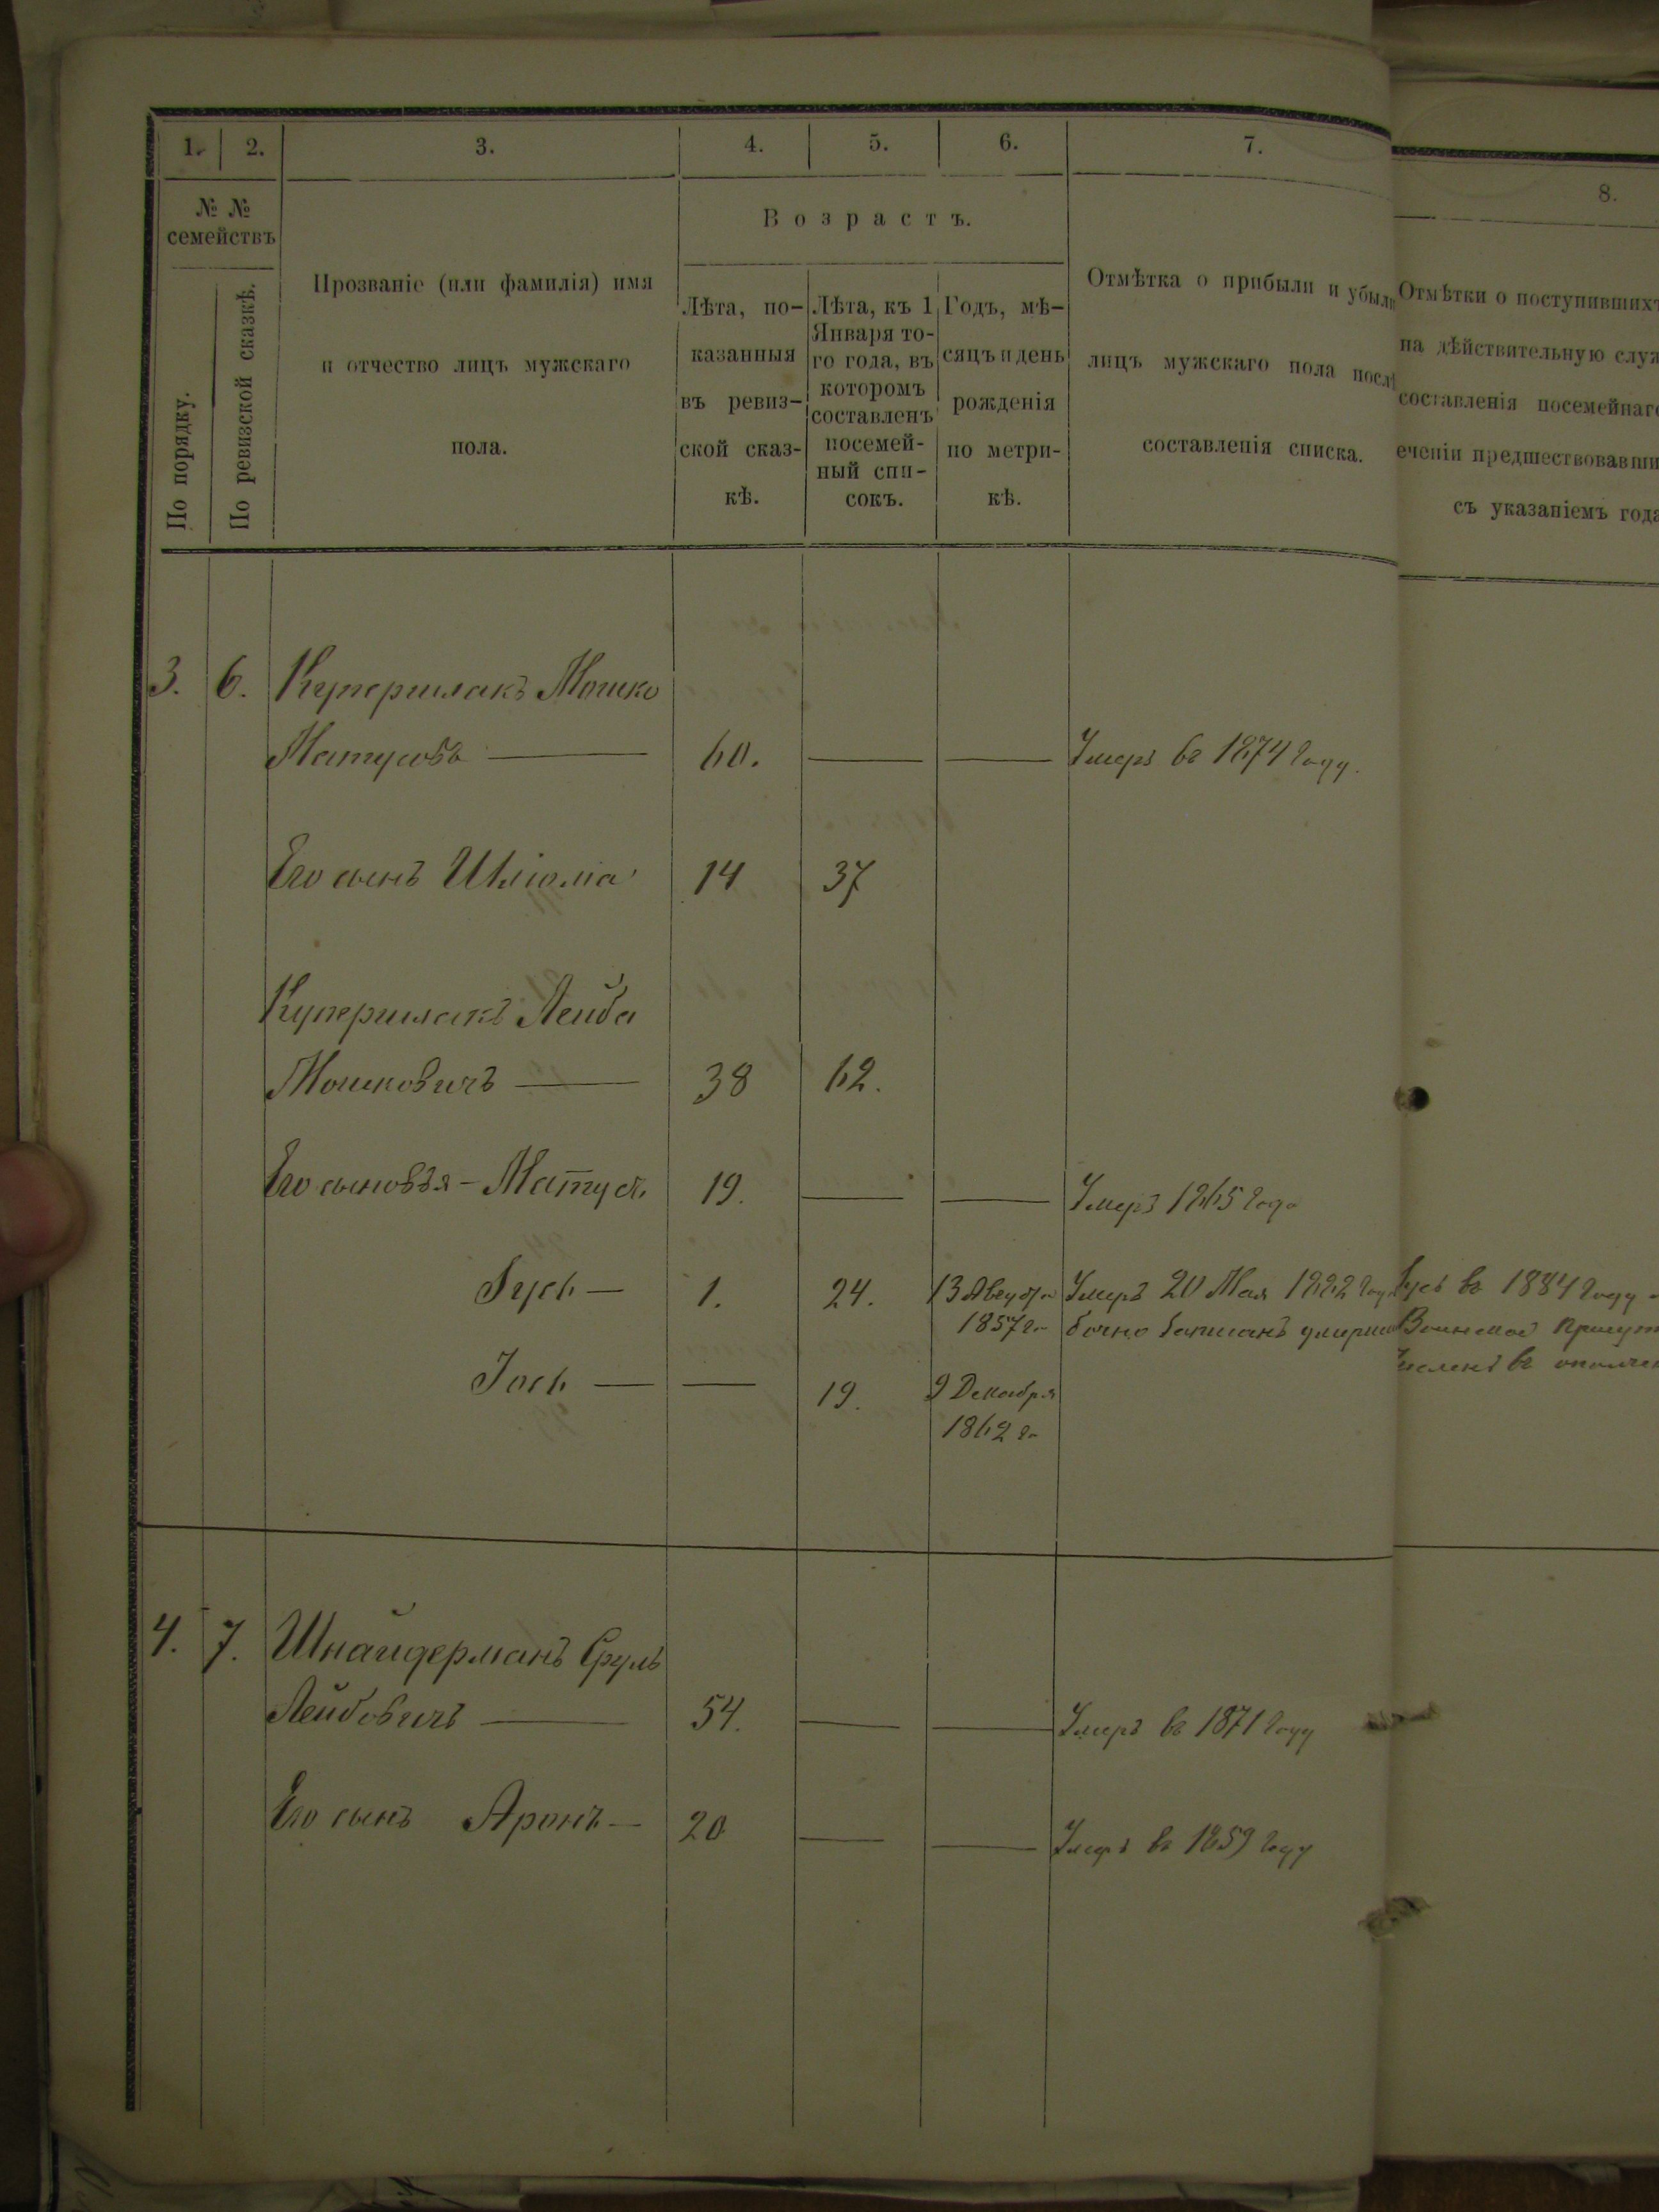 1. 2. 3. 4. 5. 6. 7. 8.
№ №
семействъ
По порядку.
По ревизской сказкѣ.
Прозваніе (или фамилія) имя
и отчество лицъ мужскаго
пола.
Возрастъ.
Лѣта, по-
казанныя
въ ревиз-
ской сказ-
кѣ.
Лѣта, къ 1
Января то-
го года, въ
которомъ
составленъ
посемей-
ный спи-
сокъ.
Годъ, мѣ-
сяцъ и день
рожденія
по метри-
кѣ.
Отмѣтка о прибыли и убыли
лицъ мужскаго пола послѣ
составленія списка.
Отмѣтки о поступившихъ
на дѣйствительную служ
составленія посемейнаго
еченіи предшествовавши
съ указаніемъ года
3. 6. Купершлакъ Мошко
Матусовъ — 60. — — Умеръ въ 1874 году.
Его сынъ Шліома 14 37
Купершлакъ Лейба
Мошковичъ — 38 62.
Его сыновья - Матусь 19. — — Умеръ 1865 года
Гусь — 1. 24. 13 Августа Умеръ 20 Мая 1882 год Гусь въ 1884 году
1857 го бочно записанъ умерши Воинское Присут
Іось — — 19. 9 Декабря
численъ въ ополчен
1862 го
4. 7. Шнайдерманъ Сруль
Лейбовичъ — 54. — — Умеръ въ 1871 году
Его сынъ Аронъ — 20 — — Умеръ въ 1859 году